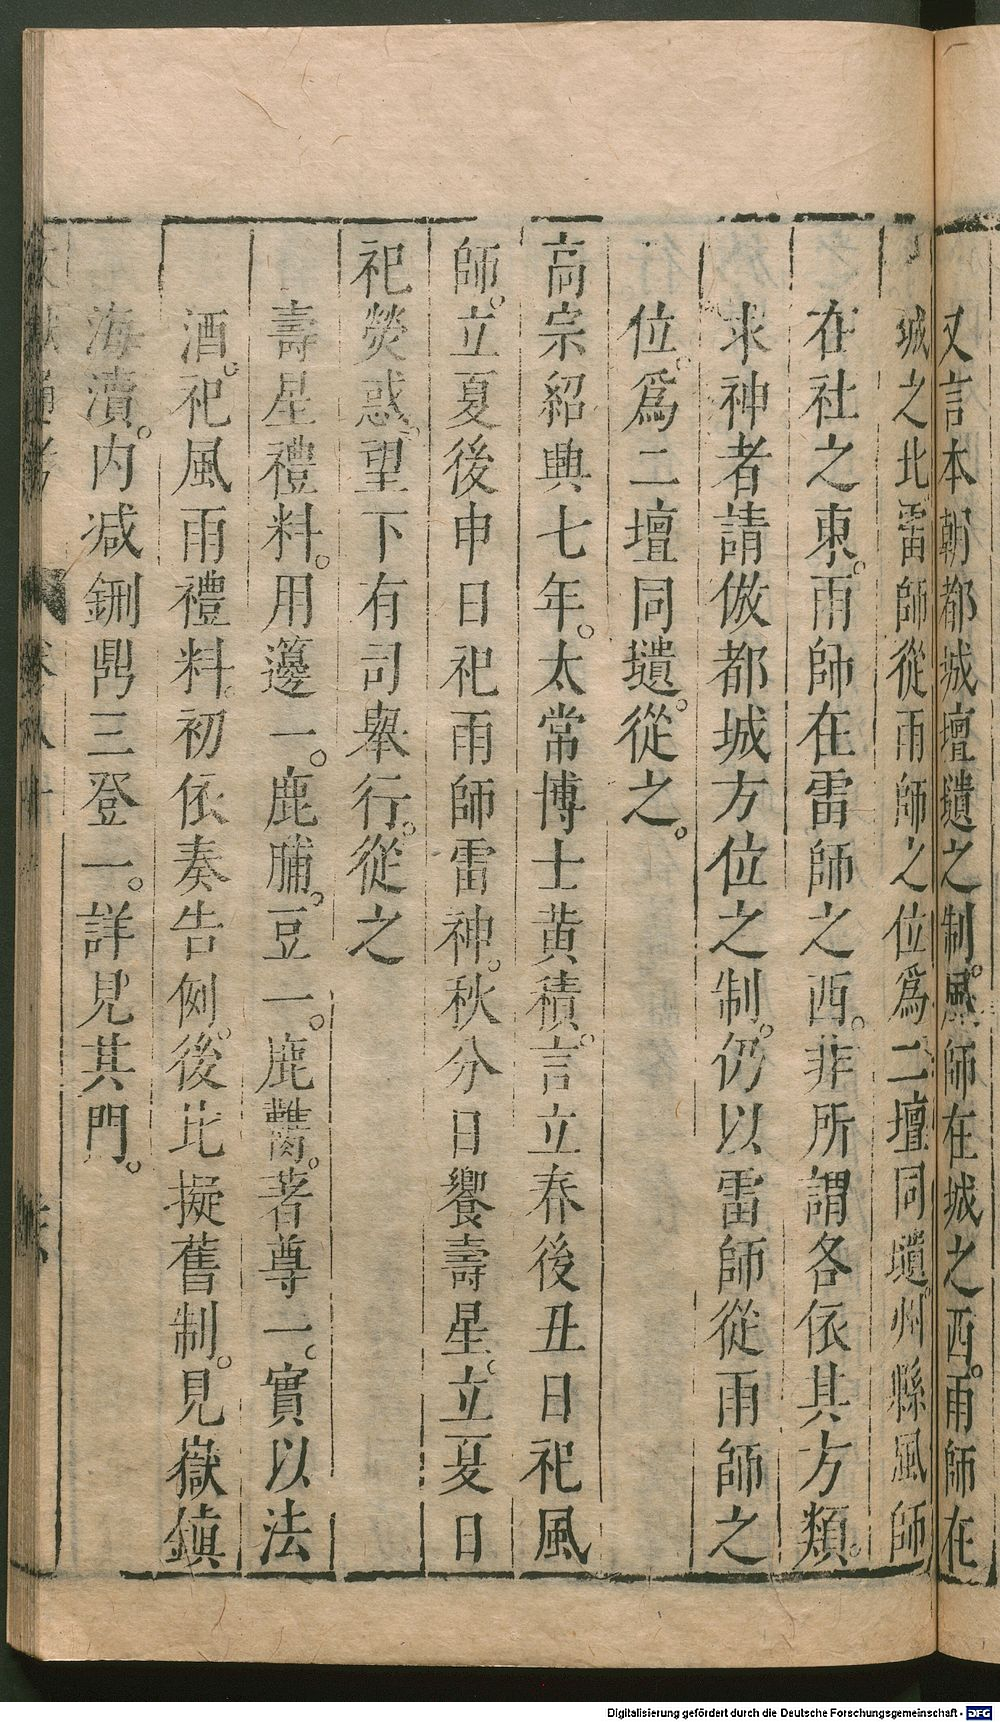 又言本朝都城壇壝之制。風師在城之西。雨師在
城之北。雷師從雨師之位爲二壇同壝。州縣風師
在社之東。雨師在雷師之西。非所謂各依其方類
求神者請倣都城方位之制。仍以雷師從雨師之
位。爲二壇同壝。從之。
高宗紹興七年。太常博士黃積。言立春後丑日祀風
師。立夏後申日祀雨師雷神。秋分日饗壽星。立夏日
祀熒惑。望下有司舉行。從之
壽星禮料。用籩一。鹿脯。豆一。鹿臡。著尊一。實以法
酒。祀風雨禮料。初依奏告例。後比擬舊制。見嶽鎮
海瀆。内减鉶鼎三登一。詳見其門。
Digitalisierung gefördert durch die Deutsche Forschungsgemeinschaft - DFG